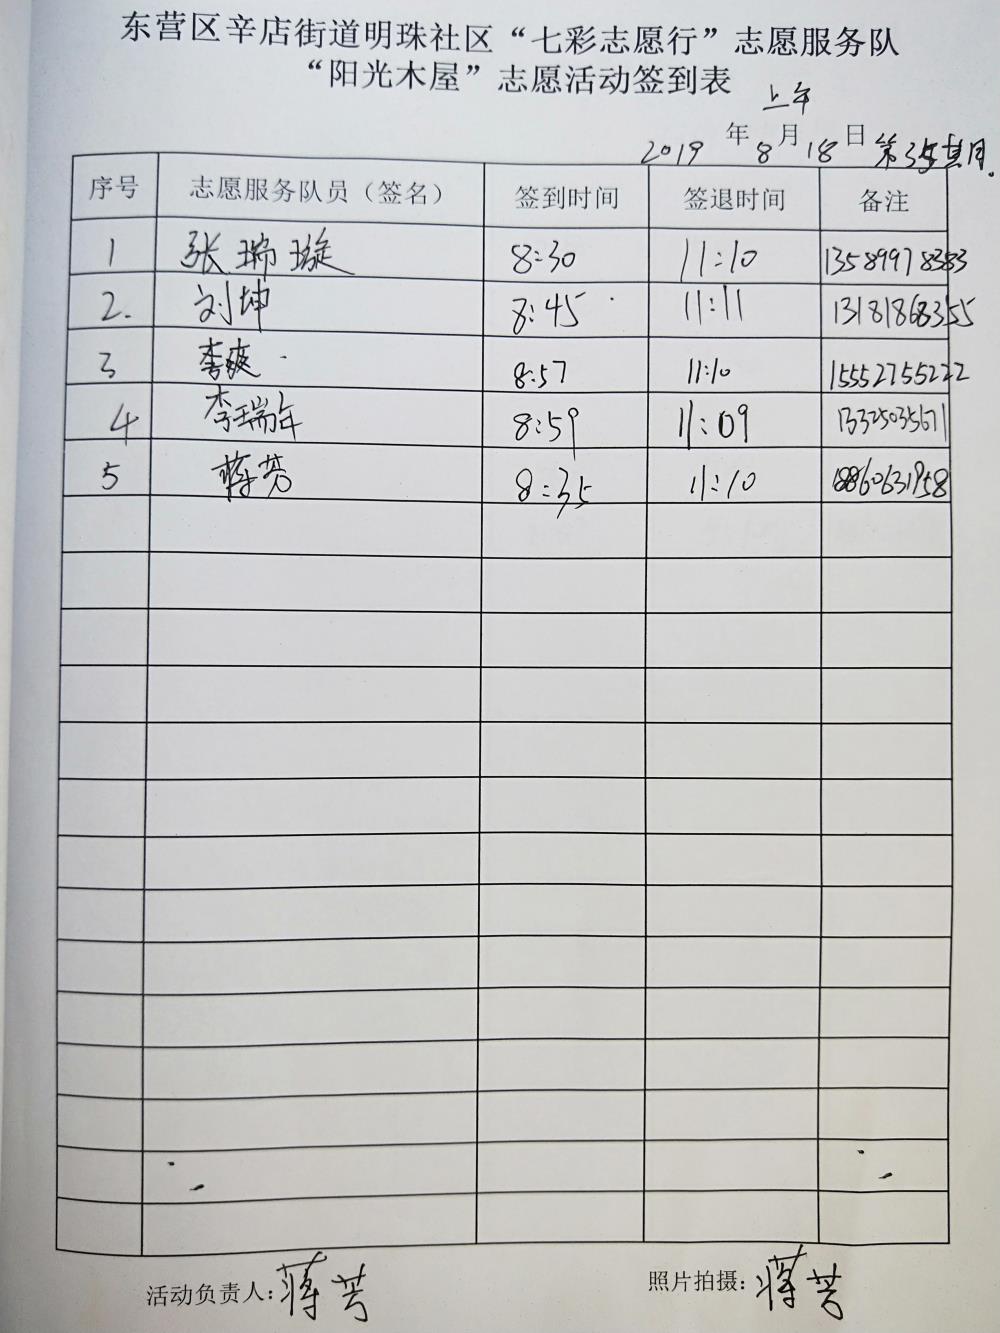 东营区辛店街道明珠社区“七彩志愿行”志愿服务队
“阳光木屋”志愿活动签到表
上午
2019 年 8 月 18 日 第35期
序号 志愿服务队员（签名） 签到时间 签退时间 备注
1 张瑞璇 8:30 11:10 13589978383
2. 刘坤 8:45 11:11 13181868355
3 李爽 8:57 11:10 15552755222
4 李瑞年 8:59 11:09 13325035671
5 蒋芳 8:35 11:10 18860631958
活动负责人：蒋芳 照片拍摄：蒋芳